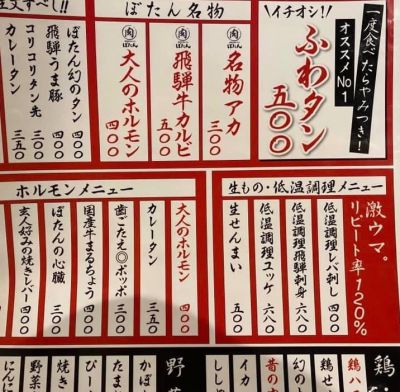 \イチオシ!/
一度食べたらやみつき!
オススメNo1
ふわタン
五〇〇
ぼたん名物
肉
ぼたん
名物アカ
三〇〇
肉
ぼたん
飛騨牛カルビ
五〇〇
肉
ぼたん
大人のホルモン
四〇〇
ぼたん幻のタン
四〇〇
飛騨うま豚
四〇〇
コリコリタン先
三五〇
カレータン
生もの・低温調理メニュー
激ウマ。
リピート率120%
低温調理レバ刺し
四八〇
低温調理飛騨刺身
六八〇
低温調理ユッケ
六八〇
生せんまい
五〇〇
ホルモンメニュー
大人のホルモン
四〇〇
カレータン
三五〇
歯ごたえ◎ポッポ
三〇〇
国産牛まるちょう
四〇〇
ぼたんの心臓
三〇〇
玄人好みの焼きレバー
四〇〇
鶏
鶏ハ
鶏せ
幻の
昔の
イカ
野菜
かぼ
たま
ピー
焼き
野菜
にんに